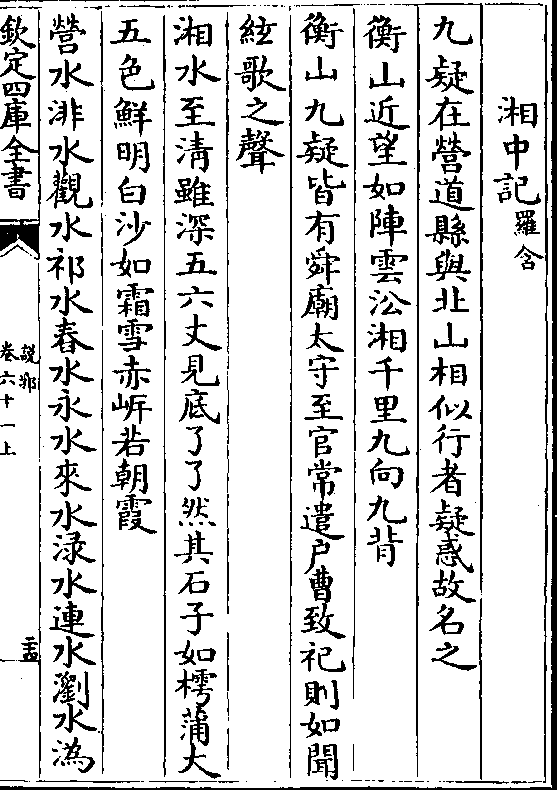 湘中記羅含
九疑在營道縣與北山相似行者疑惑故名之
衡山近望如陣雲沿湘千里九向九背
衡山九疑皆有舜廟太守至官常遣戶曹致祀則如聞
絃歌之聲
湘水至清雖深五六丈見底了了然其石子如樗蒲大
五色鮮明白沙如霜雪赤岸若朝霞
營水洮水觀水祁水舂水永水來水渌水連水瀏水溈
欽定四庫全書
說郛
卷六十一上